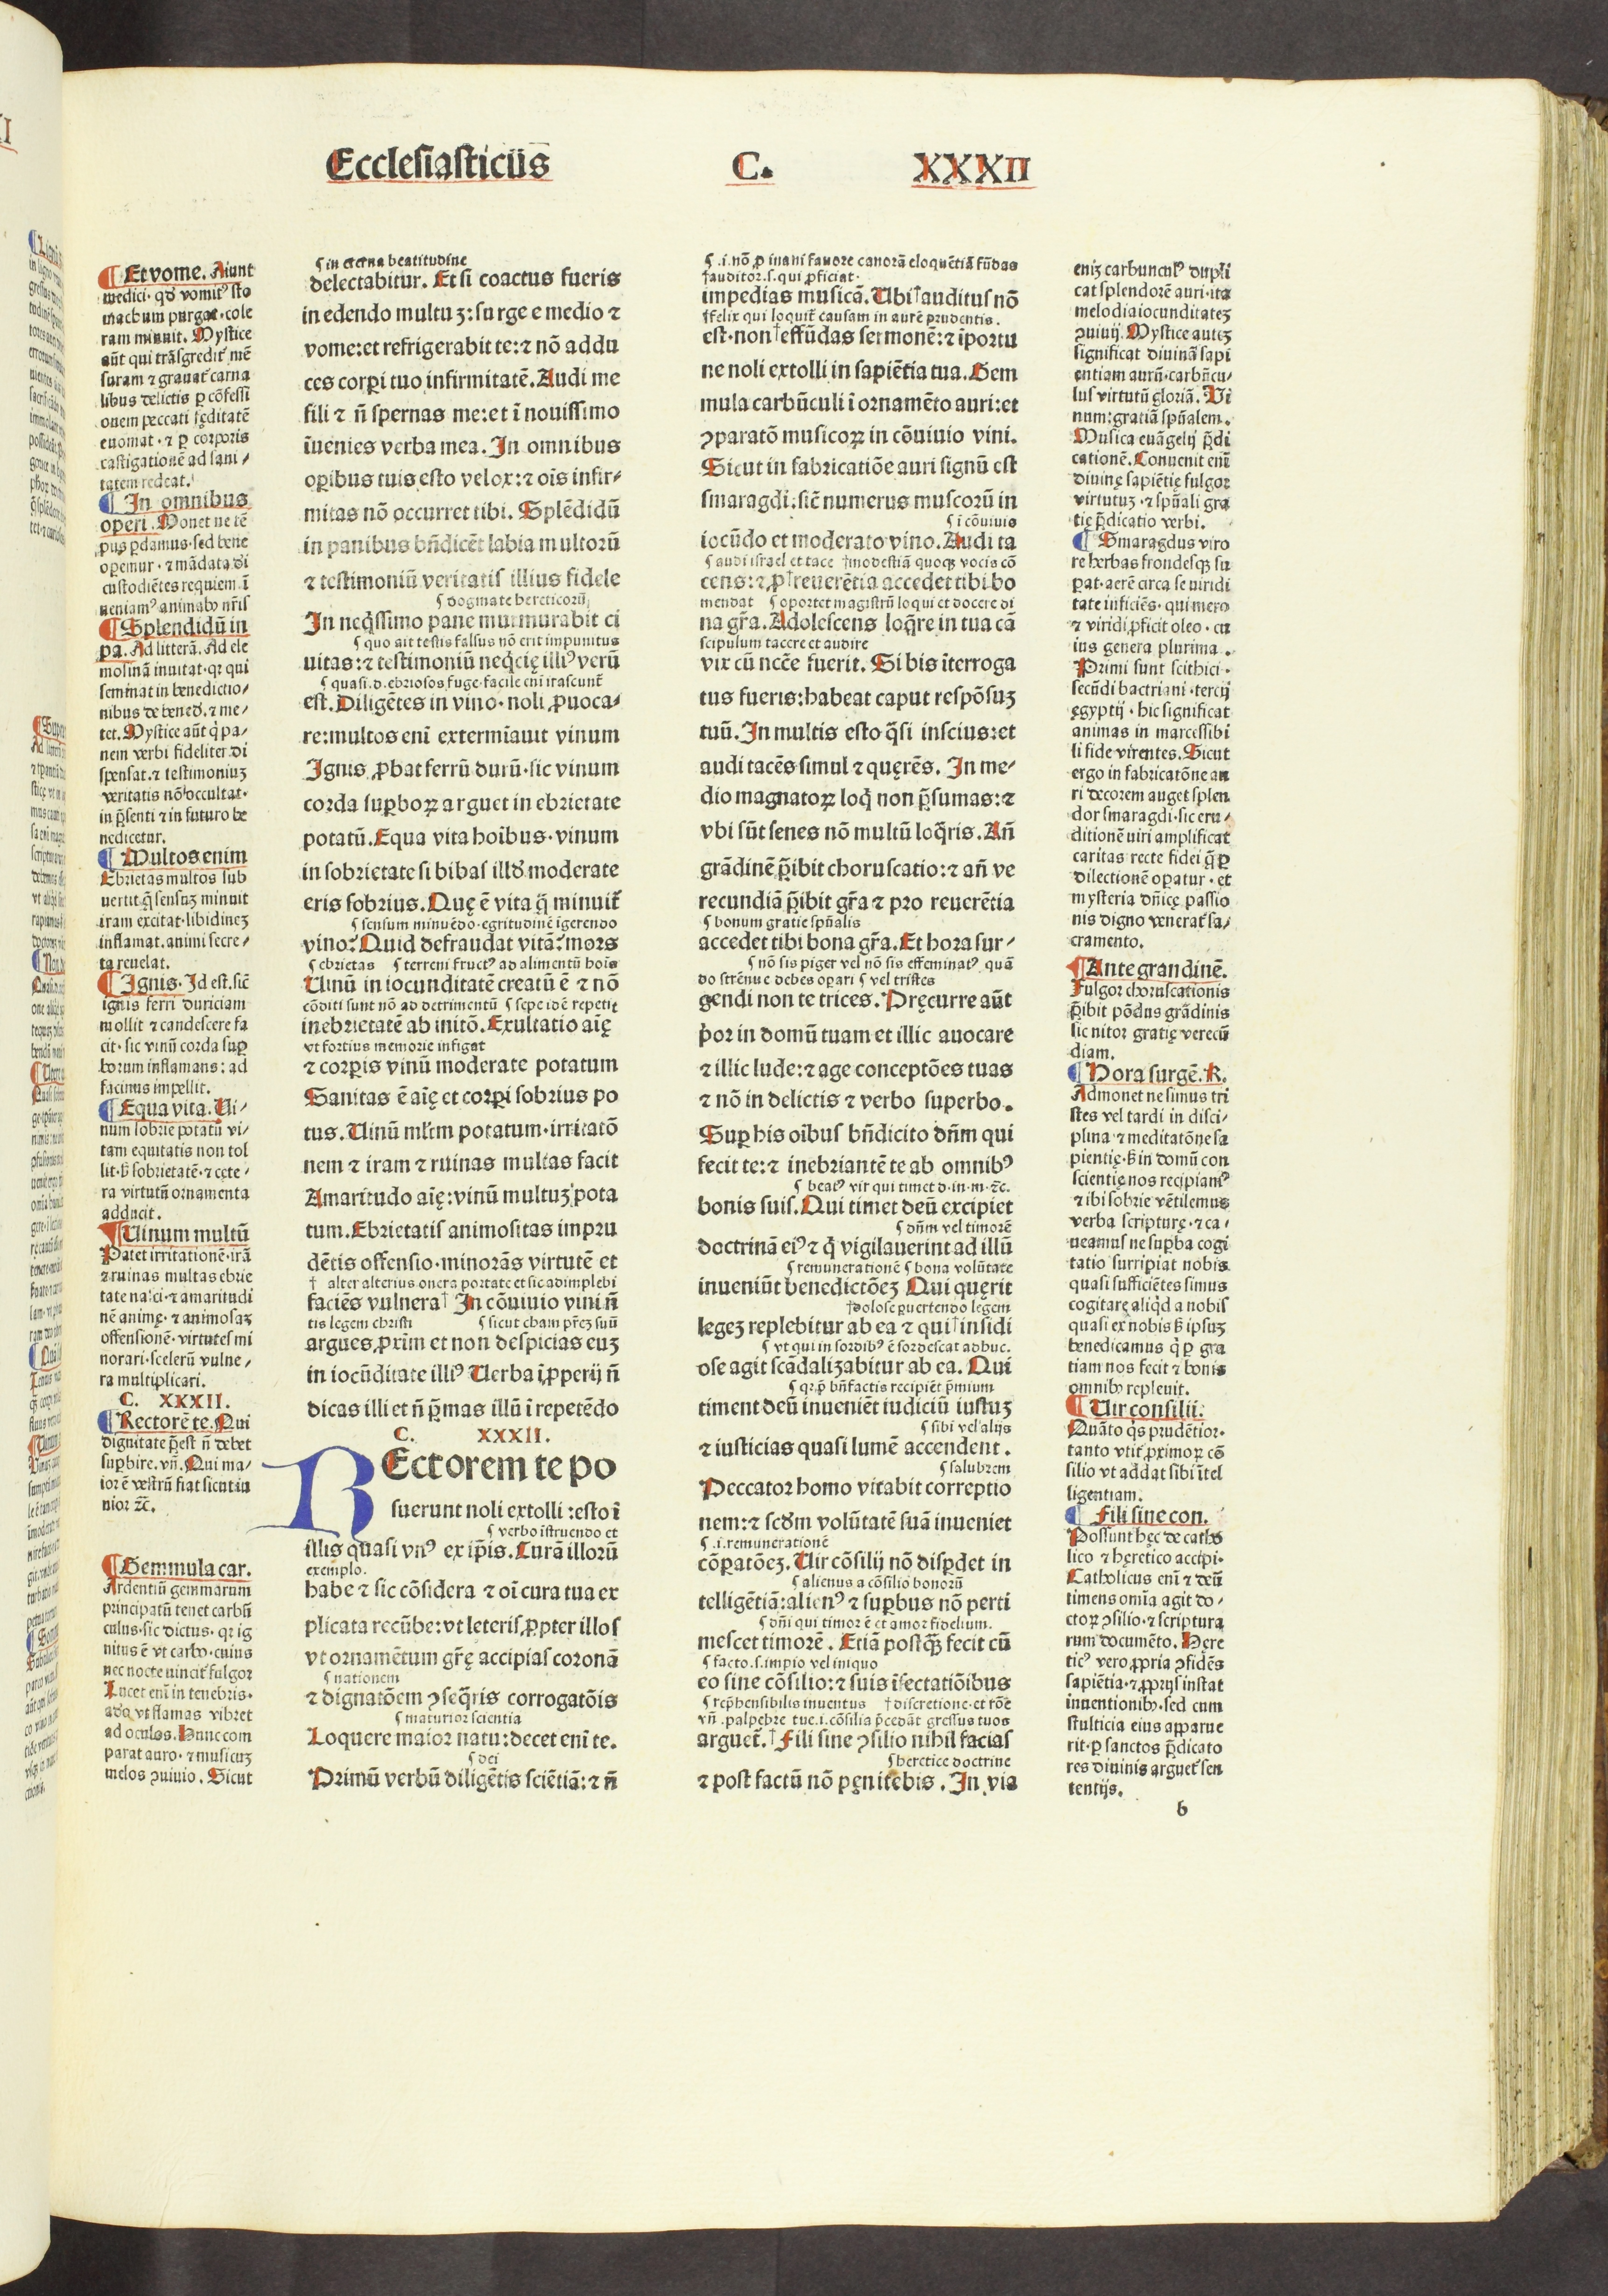 Ecclesiasticus C. XXXII
¶ Et vome. Aiunt
medici· qď vomitꝰ sto
machum purgat·cole
ram minuit. Mystice
aūt qui trāsgredit᷑ mē
suram ⁊ grauat᷑ carna
libus delictis ꝑ cōfessi
onem peccati fęditatē
euomat·⁊ ꝑ corporis
castigationē ad sani⸗
tatem redeat.
¶ In omnibus
operi. Monet ne tē
pus ꝑdamus·sed bene
oꝑemur·⁊ mādata di
custodiētes requiem ī
ueniamꝰ animabꝰ nr̄is
¶ Splendidū in
pa. Ad litterā. Ad ele
mosinā inuitat·qꝛ qui
seminat in benedictio⸗
nibus de bened. ⁊ me⸗
tet. Mystice aūt q̇ pa⸗
nem verbi fideliter di
spensat.⁊ testimoniuʒ
veritatis nō occultat·
in p̄senti ⁊ in futuro be
nedicetur.
¶ Multos enim
Ebrietas multos sub
uertit q̄ sensuʒ minuit
iram excitat·libidineʒ
inflamat.animi secre⸗
ta reuelat.
¶ Ignis. Id est.sic̄
ignis ferri duriciam
mollit ⁊ candescere fa
cit·sic vinū corda suꝑ
borum inflamans: ad
facinus impellit.
¶ Equa vita. Ui⸗
num sobrie potatū vi⸗
tam equitatis non tol
lit·ß sobrietatē·⁊ cęte⸗
ra virtutū ornamenta
adducit.
¶ Uinum multū
Patet irritationē·irā
⁊ ruinas multas ebrie
tate nasci·⁊ amaritudi
nē animę·⁊ animosaʒ
offensionē·virtutes mi
norari·scelerū vulne⸗
ra multiplicari.
C. XXXII.
¶ Rectorē te. Qui
dignitate p̄est n̄ debet
suꝑbire.vn̄. Qui ma⸗
ior ē vestrū fiat sicut iu
nior ⁊c̄.
¶ Gemmula car.
Ardentiū gemmarum
principatū tenet carbū
culus·sic dictus·qꝛ ig
nitus ē vt carbo·cuius
nec nocte uincit᷑ fulgor
Lucet eni in tenebris·
adeo vt flamas vibret
ad oculos. Hunc com
parat auro·⁊ musicuʒ
melos ꝯuiuio. Sicut
¶ in eterna beatitudine
delectabitur. Et si coactus fueris
in edendo multuʒ: surge e medio ⁊
vome:et refrigerabit te:⁊ nō addu
ces corꝑi tuo infirmitatē. Audi me
fili ⁊ n̄ spernas me:et ī nouissimo
īuenies verba mea. In omnibus
oꝑibus tuis esto velox:⁊ oīs infir⸗
mitas nō occurret tibi. Splēdidū
in panibus bn̄dicēt labia multorū
⁊ testimoniū veritatis illius fidele
¶ dogmate hereticorū
In neq̇ssimo pane murmurabit ci
¶ quo ait testis falsus nō erit impunitus
uitas:⁊ testimoniū neq̇cię illiꝰ verū
¶ quasi.d.ebriosos fuge·facile eni irascunt᷑
est. Diligētes in vino·noli ꝓuoca⸗
re:multos eni extermīauit vinum
Ignis ꝓbat ferrū durū·sic vinum
corda suꝑboꝝ arguet in ebrietate
potatū. Equa vita hoibus·vinum
in sobrietate si bibas illď moderate
eris sobrius. Quę ē vita q̄ minuit᷑
¶ sensum minuēdo·egritudinē igerendo
vino? Quid defraudat vitā? mors
¶ ebrietas ¶ terreni fructꝰ ad alimentū hois
Uinū in iocunditatē creatū ē ⁊ nō
cōditi sunt nō ad detrimentū ¶ sepe idē repetit
inebrietatē ab initō. Exultatio aīę
vt fortius memorie infigat
⁊ corꝑis vinū moderate potatum
Sanitas ē aīę et corꝑi sobrius po
tus. Uinū ml̄tm potatum·irritatō
nem ⁊ iram ⁊ ruinas multas facit
Amaritudo aīę:vinū multuʒ pota
tum. Ebrietatis animositas impru
dētis offensio·minorās virtutē et
† alter alterius onera portate et sic adimplebi
faciēs vulnera† In cōuiuio vini n̄
tis legem christi ¶ sicut cham pr̄eʒ suū
argues ꝓxīm et non despicias euʒ
in iocūditate illiꝰ Uerba iꝓperij n̄
dicas illi et n̄ p̄mas illū ī repetēdo
C. XXXII.
REctorem te po
suerunt noli extolli :esto ī
¶ verbo īstruendo et
illis quasi vnꝰ ex iꝑis. Curā illorū
exemplo.
habe ⁊ sic cōsidera ⁊ oi cura tua ex
plicata recūbe:vt leteris ꝓpter illos
vt ornamētum gr̄ę accipias coronā
¶ nationem
⁊ dignatōem ꝯseq̄ris corrogatōis
¶ maturior scientia
Loquere maior natu:decet eni te.
¶ dei
Primū verbū diligētis sciētiā:⁊ n̄
¶ .i.nō ꝓ inani fauore canorā eloquētiā fūdas
†auditor.s.qui ꝓficiat·
impedias musicā. Ubi†auditus nō
†felix qui loquit᷑ causam in aurē prudentis.
est·non†effūdas sermonē:⁊ īportu
ne noli extolli in sapiētia tua. Gem
mula carbūculi ī ornamēto auri:et
ꝯparatō musicoꝝ in cōuiuio vini.
Sicut in fabricatiōe auri signū est
smaragdi:sic̄ numerus muscorū in
¶ i cōuiuio
iocūdo et moderato vino. Audi ta
¶ audi israel et tace †modestiā quoqꝫ vocis cō
cens:⁊ ꝓ†reuerētia accedet tibi bo
mendat ¶ oportet magistrū loqui et docere di
na gr̄a. Adolescens loq̄re in tua cā
scipulum tacere et audire
vix cū nccē fuerit. Si bis īterroga
tus fueris:habeat caput respōsuʒ
tuū. In multis esto q̄si inscius:et
audi tacēs simul ⁊ quęrēs. In me⸗
dio magnatoꝝ loq̇ non p̄sumas:⁊
vbi sūt senes nō multū loq̄ris. An̄
grādinē p̄ibit choruscatio:⁊ an̄ ve
recundiā p̄ibit gr̄a ⁊ pro reuerētia
¶ bonum gratie spūalis
accedet tibi bona gr̄a. Et hora sur⸗
¶ nō sis piger vel nō sis effeminatꝰ quā
do strēnue debes oꝑari ¶ vel tristes
gendi non te trices. Pręcurre aūt
ṗor in domū tuam et illic auocare
⁊ illic lude:⁊ age conceptōes tuas
⁊ nō in delictis ⁊ verbo superbo.
Suꝑ his oībus bn̄dicito dn̄m qui
fecit te:⁊ inebriantē te ab omnibꝰ
¶ beatꝰ vir qui timet d.in.m.⁊c̄.
bonis suis. Qui timet deū excipiet
¶ dn̄m vel timorē
doctrinā eiꝰ ⁊ q̇ vigilauerint ad illū
¶ remunerationē ¶ bona volūtate
inueniūt benedictōeʒ Qui quęrit
†dolose ꝑuertendo legem
legeʒ replebitur ab ea ⁊ qui†insidi
¶ vt qui in sordibꝰ ē sordescat adhuc.
ose agit scādalizabitur ab ea. Qui
¶ qꝛ ꝓ bn̄factis recipiēt p̄mium
timent deū inueniēt iudiciū iustuʒ
¶ sibi vel alijs
⁊ iusticias quasi lumē accendent.
¶ salubrem
Peccator homo vitabit correptio
nem:⁊ scďm volūtatē suā inueniet
¶ .i.remunerationē
cōparatōeʒ. Uir cōsilij nō disꝑdet in
¶ alienus a cōsilio bonorū
telligētiā:alienꝰ ⁊ suꝑbus nō perti
¶ dn̄i qui timor ē et amor fidelium.
mescet timorē. Etiā postq̄ꝫ fecit cū
¶ facto.s.impio vel iniquo
eo sine cōsilio:⁊ suis īsectatiōibus
¶ rep̄hensibilis inuentus †discretione·et rōe
vn̄.palpebre tue.i.cōsilia p̄cedāt gressus tuos
arguet᷑.†Fili sine ꝯsilio nihil facias
¶ heretice doctrine
⁊ post factū nō pęnitebis. In via
eniʒ carbunculꝰ dupli
cat splendorē auri·ita
melodia iocunditateʒ
ꝯuiuij. Mystice auteʒ
significat diuinā sapi
entiam aurū·carbūcu⸗
lus virtutū gloriā. Vi
num:gratiā spūalem.
Musica euāgelij p̄di
cationē. Conuenit enī
diuinę sapiētię fulgor
virtutuʒ·⁊ spūali gra
tię p̄dicatio verbi.
¶ Smaragdus viro
re herbas frondesqꝫ su
ꝑat·aerē circa se viridi
tate inficiēs·qui mero
⁊ viridi ꝓficit oleo·cu
ius genera plurima.
Primi sunt scithici·
secūdi bactriani·tercij
ęgyptij·hic significat
animas in marcessibi
li fide virentes. Sicut
ergo in fabricatōne au
ri decorem auget splen
dor smaragdi·sic eru⸗
ditionē uiri amplificat
caritas recte fidei q̄ ꝑ
dilectionē oꝑatur·et
mysteria dn̄icę passio
nis digno venerat᷑ sa⸗
cramento.
¶ Ante grandinē.
Fulgor choruscationis
p̄ibit pōdus grādinis
sic nitor gratię verecū
diam.
¶ Hora surgē. R.
Admonet ne simus tri
stes vel tardi in disci⸗
plina ⁊ meditatōne sa
pientię·ß in domū con
scientię nos recipiamꝰ
⁊ ibi sobrie vētilemus
verba scripturę·⁊ ca⸗
ueamus ne suꝑba cogi
tatio surripiat nobis
quasi sufficiētes simus
cogitare aliq̇d a nobis
quasi ex nobis ß ipsuʒ
benedicamus q̇ ꝑ gra
tiam nos fecit ⁊ bonis
omnibꝰ repleuit.
¶ Uir consilii.
Quāto q̇s prudētior·
tanto vtit᷑ ꝓximoꝝ cō
silio vt addat sibi ītel
ligentiam.
¶ Fili sine con.
Possunt hęc de catho
lico ⁊ hęretico accipi·
Catholicus eni ⁊ deū
timens omīa agit do⸗
ctoꝝ ꝯsilio·⁊ scriptura
rum documēto. Here
ticꝰ vero ꝓpria ꝯfidēs
sapiētia·⁊ ꝓprijs instat
inuentionibꝰ·sed cum
stulticia eius apparue
rit·ꝑ sanctos p̄dicato
res diuinis arguet᷑ sen
tentijs.
b